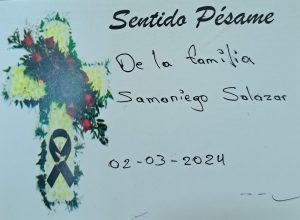 Sentido Pésame
De la familia
Samaniego Salazar
02-03-2024